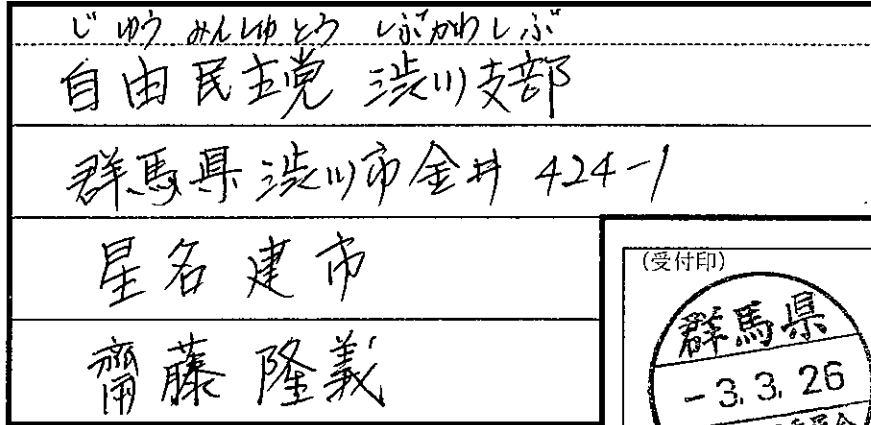 じゆう みんしゅとう しぶかわしぶ
自由民主党 渋川支部
群馬県渋川市金井 424-1
星名建市
齋藤隆義
(受付印)
群馬県
-3.3.26